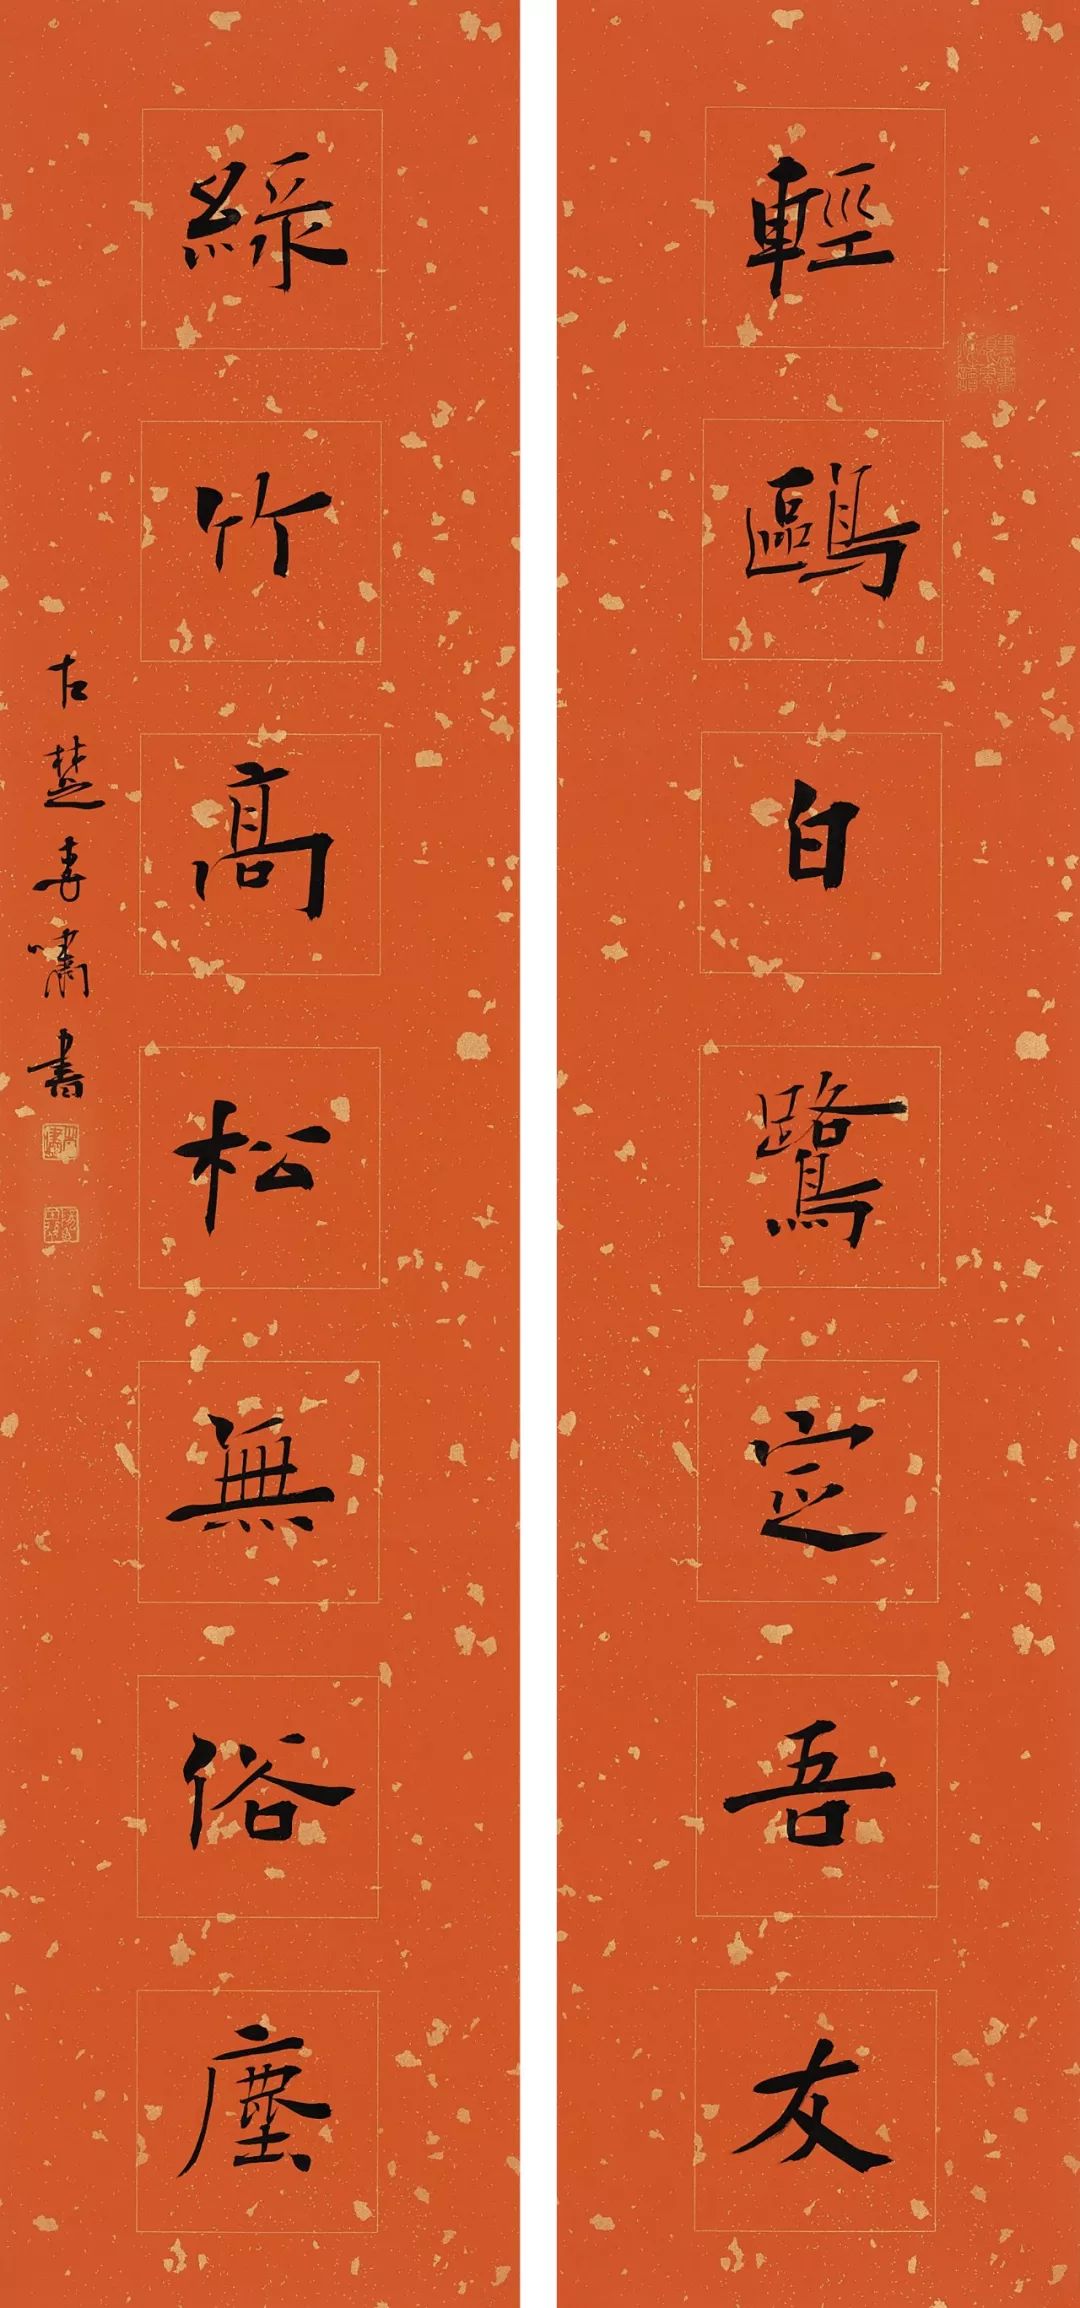 輕鷗白鷺定吾友
綠竹高松無俗塵
古楚李嘯書